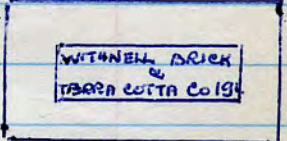 WITHNELL BRICK
&
TERRA COTTA CO 19